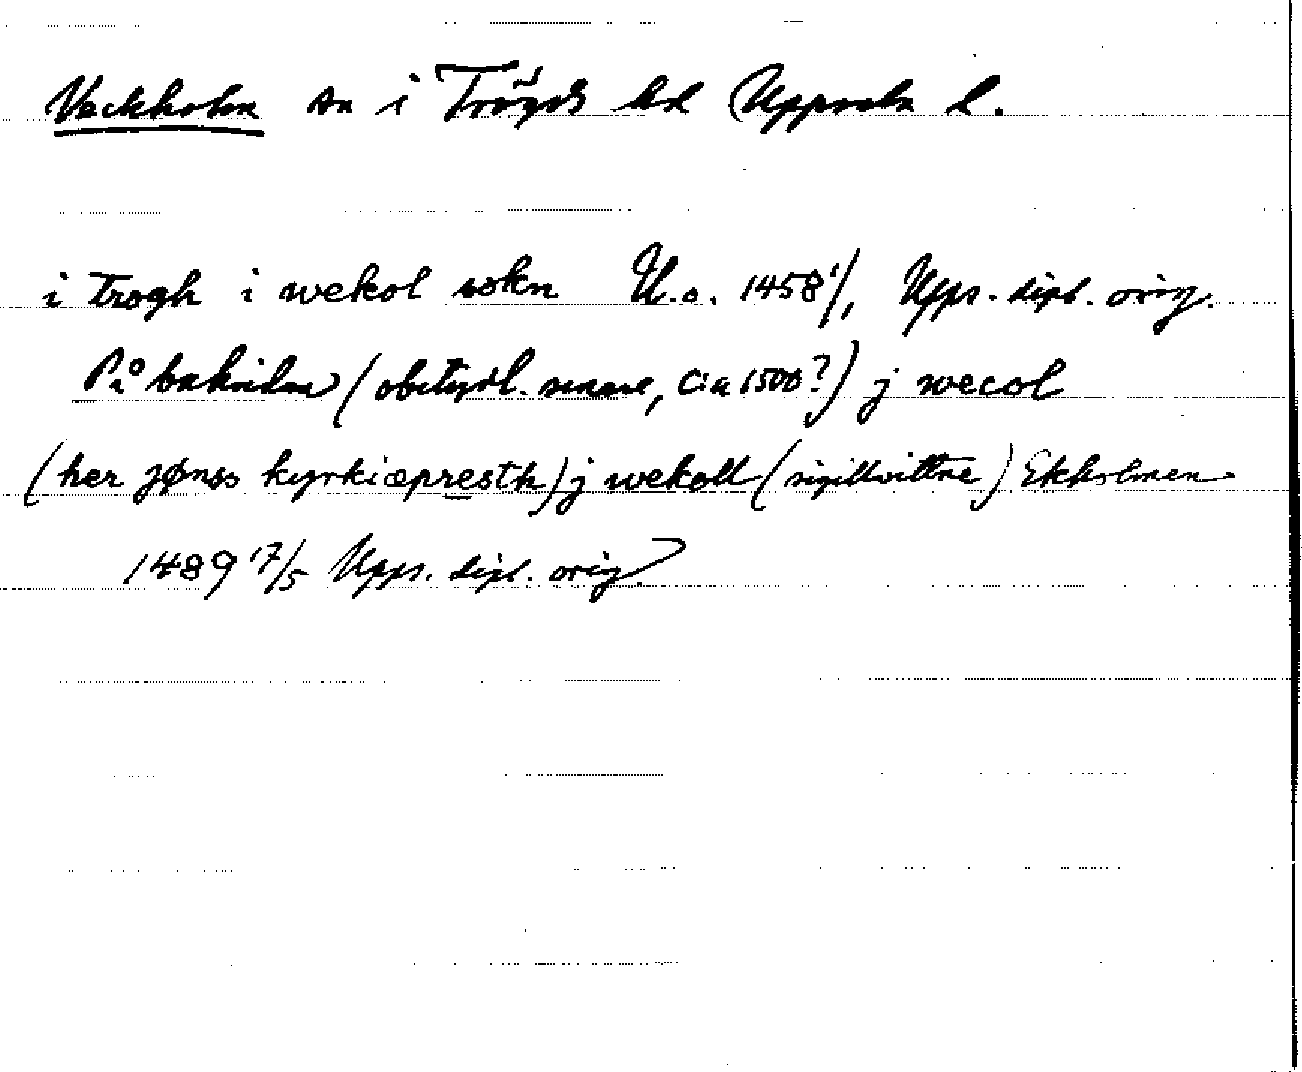 Veckholm sn i Trögds hd Uppsala l.
i trogh i wekol sokn U.o. 1458 1/1 Upps. dipl. orig.
På baksidan (obetydl. senare, c:a 1500?) j wecol
(her jønss kyrkiæpresth) j wekoll (sigillvittne) Ekholmen
1489 17/5 Upps. dipl. orig.